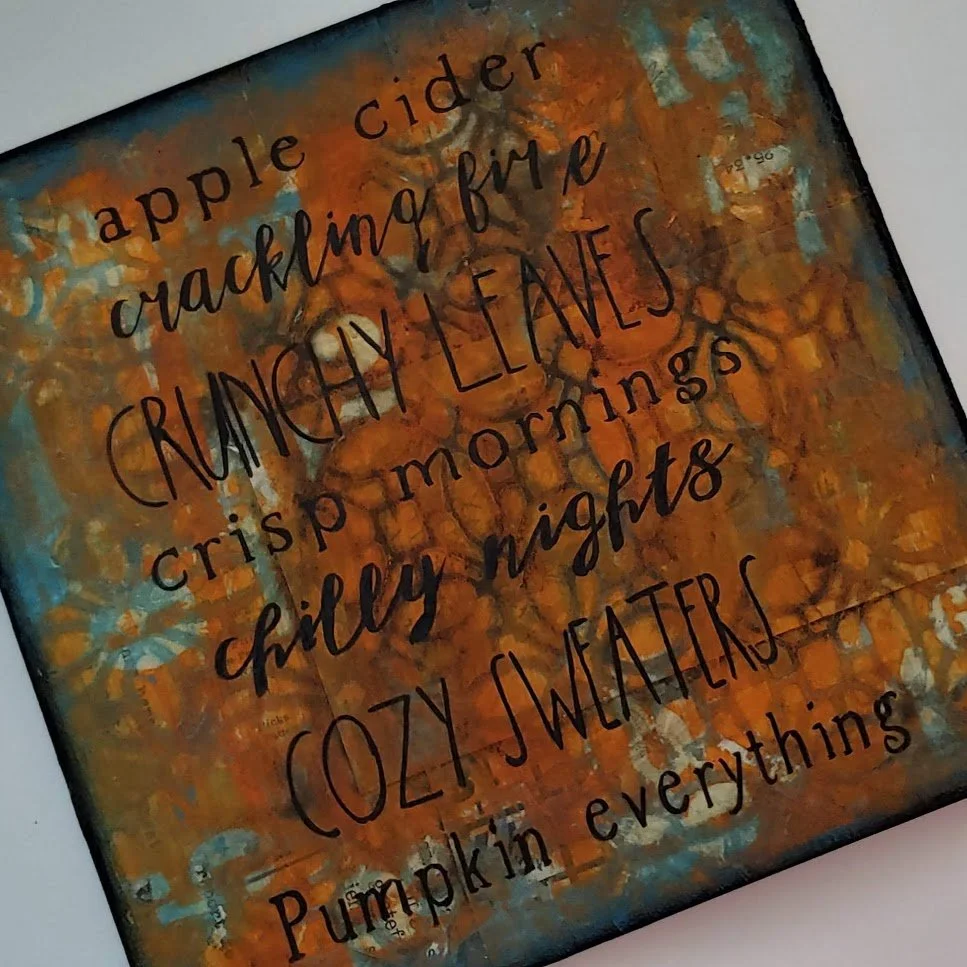 apple cider
crackling fire
CRUNCHY LEAVES
crisp mornings
chilly nights
COZY SWEATERS
Pumpkin everything